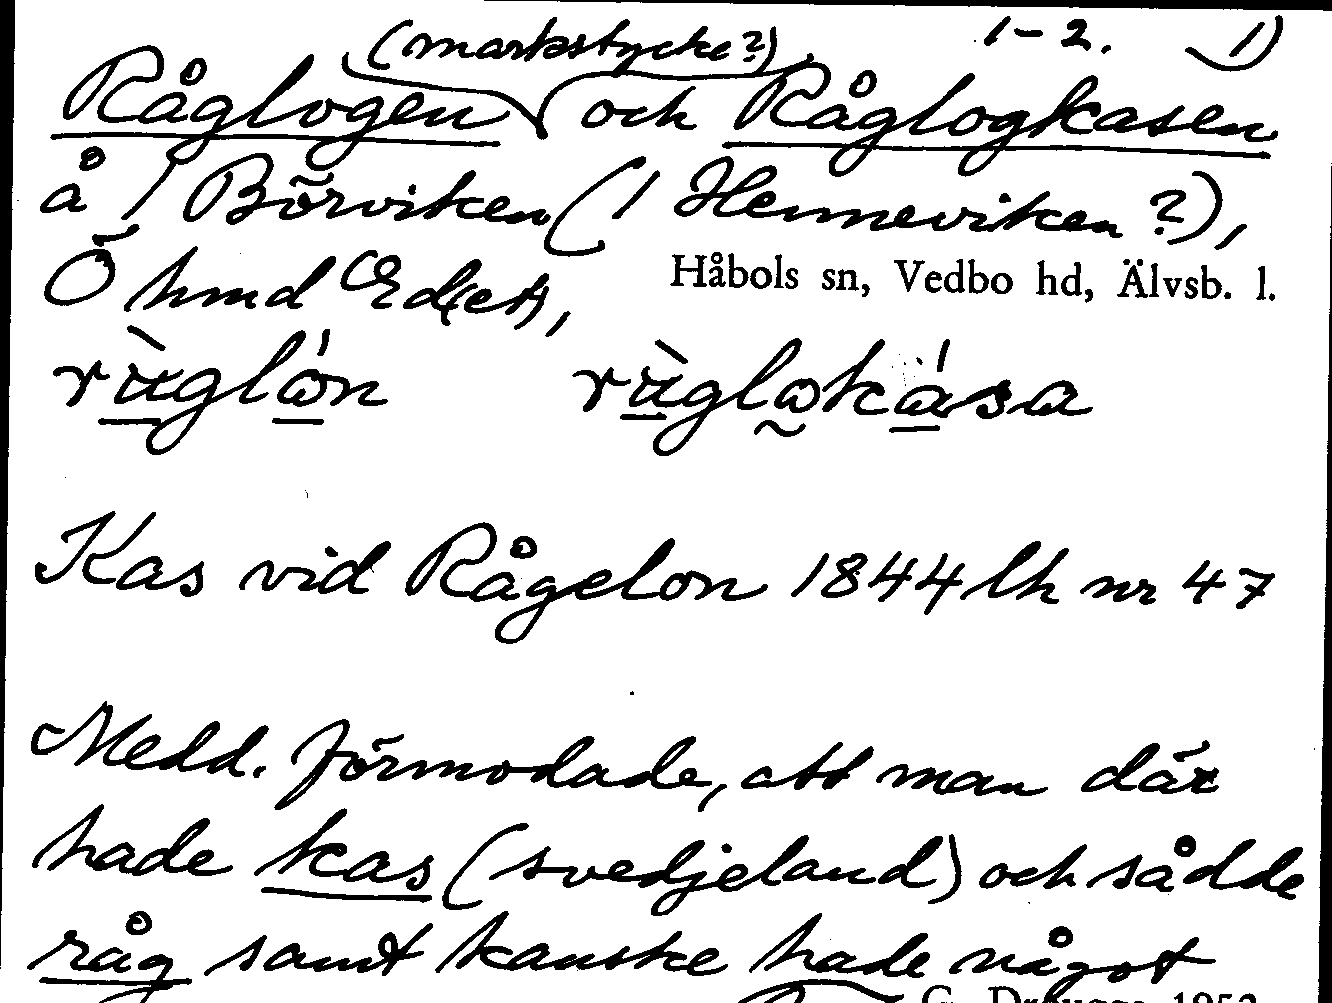 (markstycke?) 1-2. 1)
Råglogen och Råglogkasen
å 1 Börviken (1 Henneviken?),
Ö hmd Ed(et),
Håbols sn, Vedbo hd, Älvsb. l.
Kas vid Rågelon 1844 lh nr 47
Medd. förmodade, att man där
hade kas (svedjeland) och sådde
råg samt kanske hade något